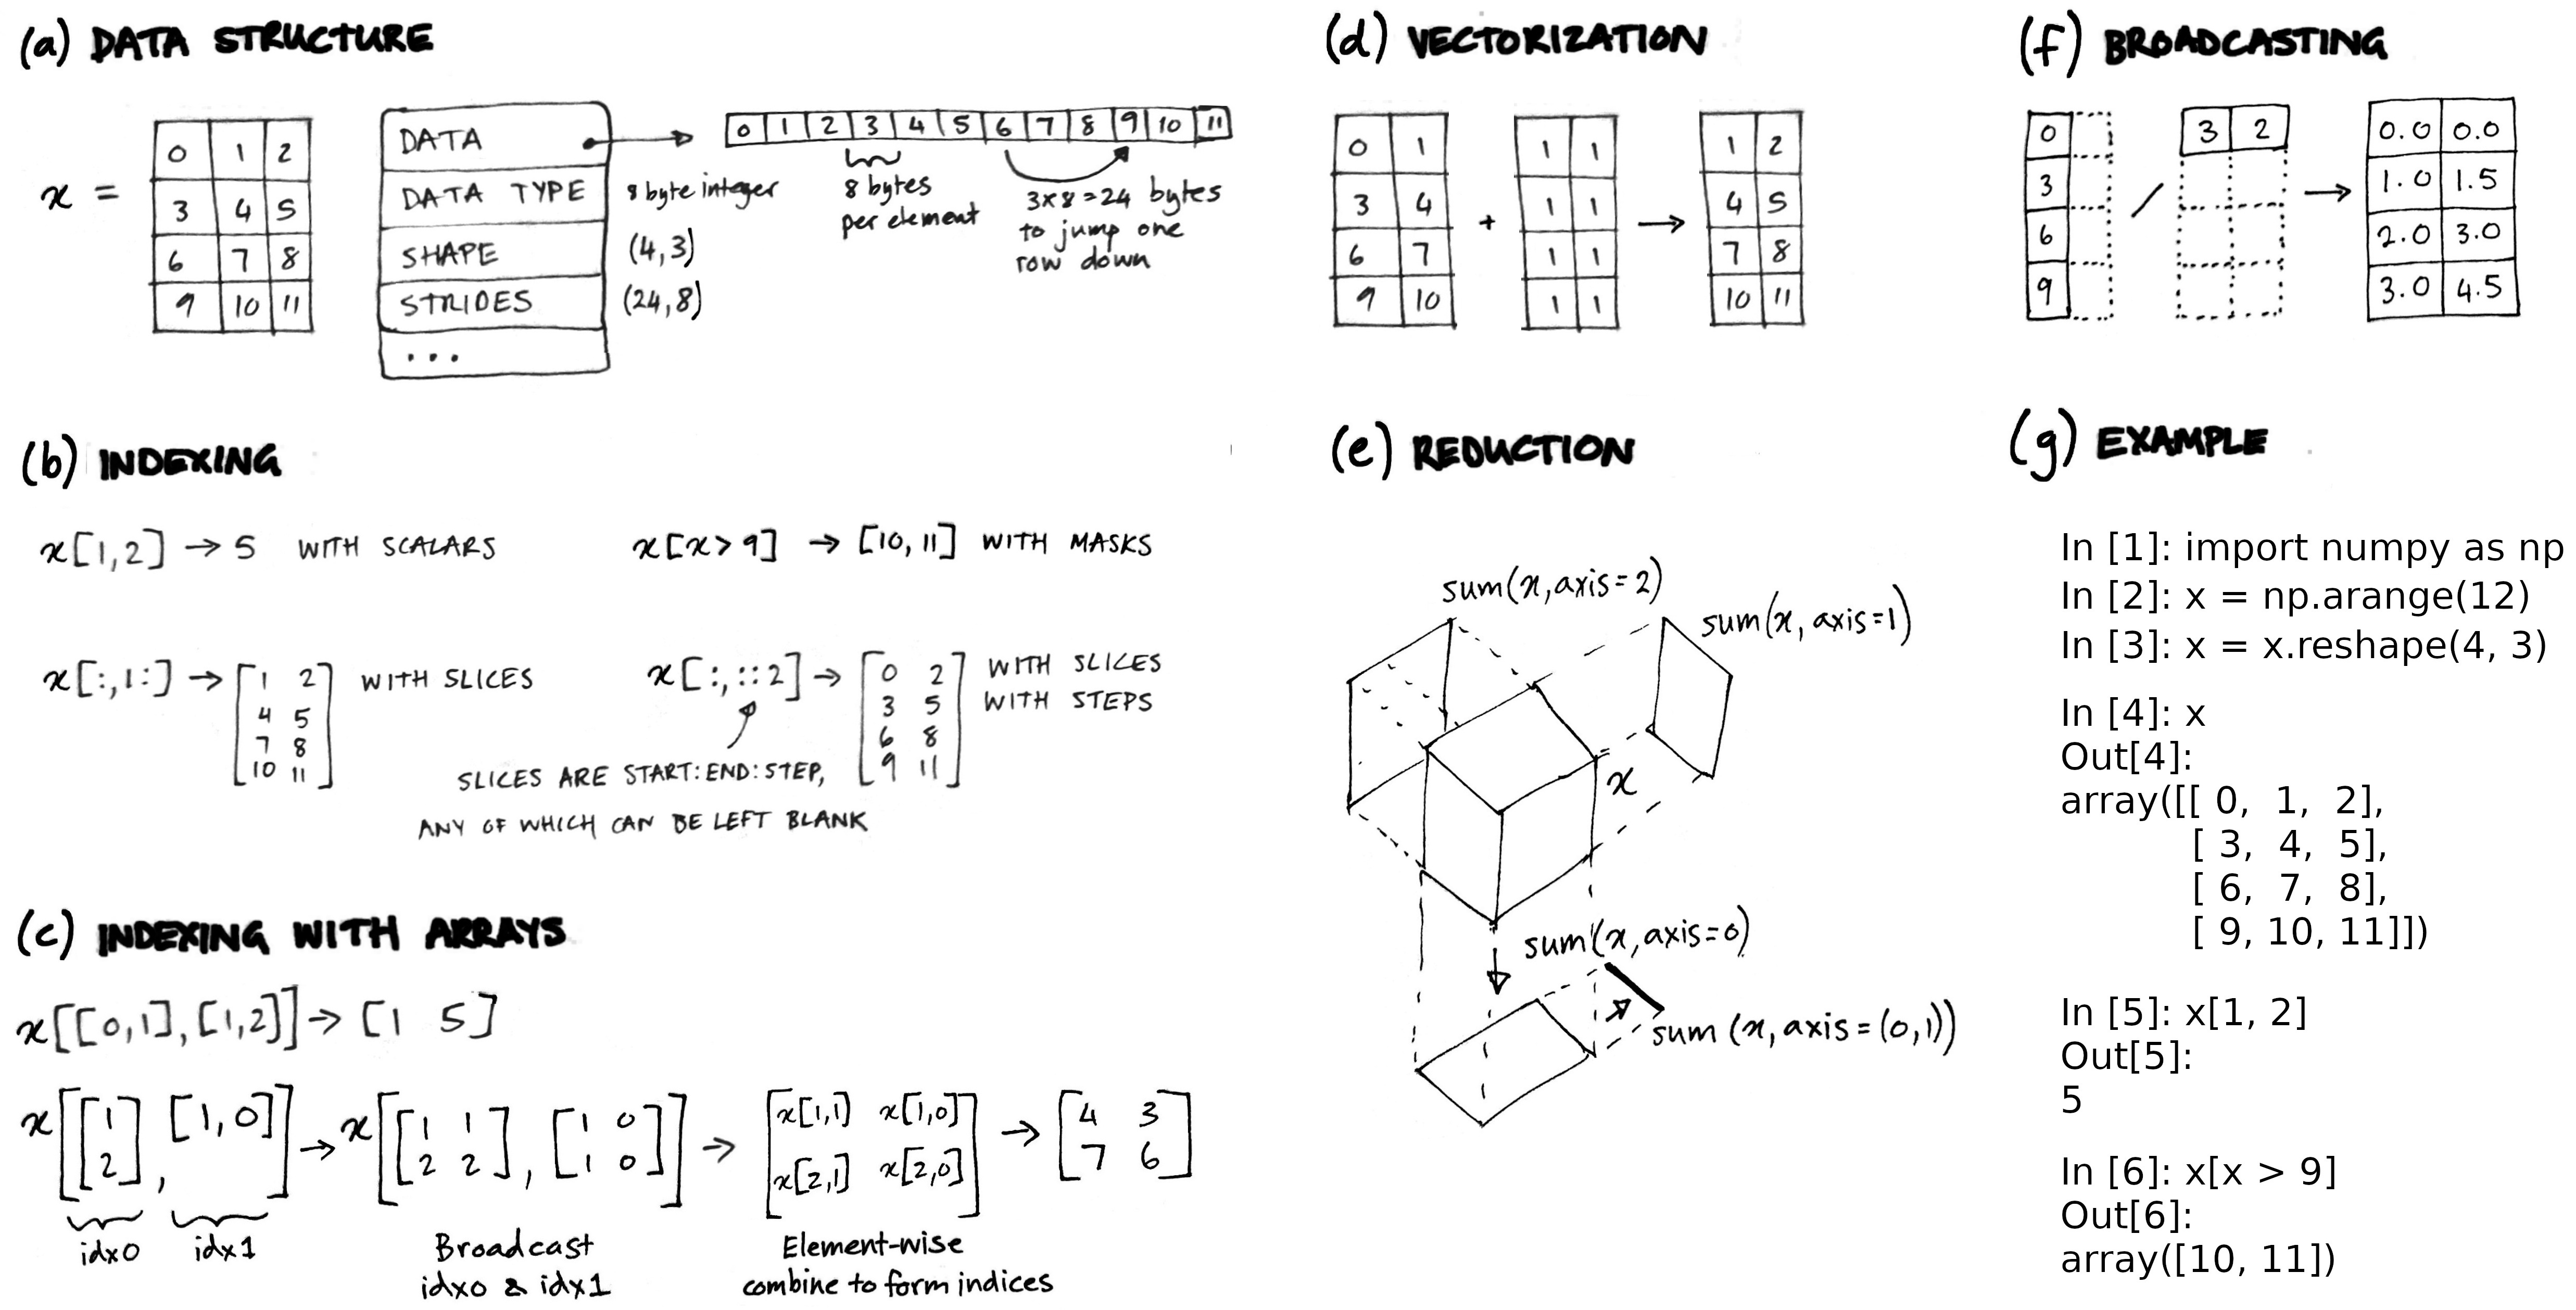 (a) DATA STRUCTURE
x =
0 1 2
3 4 5
6 7 8
9 10 11
DATA
DATA TYPE
SHAPE
STRIDES
...
8 byte integer
(4,3)
(24,8)
0 1 2 3 4 5 6 7 8 9 10 11
8 bytes
per element
3x8=24 bytes
to jump one
row down
(b) INDEXING
x[1,2] → 5 WITH SCALARS
x[x>9] → [10,11] WITH MASKS
x[:,1:] → WITH SLICES
1 2
4 5
7 8
10 11
x[:,::2] → WITH SLICES
WITH STEPS
0 2
3 5
6 8
9 11
SLICES ARE START:END:STEP,
ANY OF WHICH CAN BE LEFT BLANK
(c) INDEXING WITH ARRAYS
x[[0,1],[1,2]] → [1 5]
x[[1 2], [1,0]] → x[[1 1 2 2], [1 0 1 0]] →
x[1,1] x[1,0]
x[2,1] x[2,0]
→
4 3
7 6
idx0 idx1
Broadcast
idx0 & idx1
Element-wise
combine to form indices
(d) VECTORIZATION
0 1
3 4
6 7
9 10
+
1 1
1 1
1 1
1 1
→
1 2
4 5
7 8
10 11
(e) REDUCTION
sum(x,axis=2)
sum(x,axis=1)
x
sum(x,axis=0)
sum(x,axis=(0,1))
(f) BROADCASTING
0
3
6
9
/
3 2
→
0.0 0.0
1.0 1.5
2.0 3.0
3.0 4.5
(g) EXAMPLE
In [1]: import numpy as np
In [2]: x = np.arange(12)
In [3]: x = x.reshape(4, 3)
In [4]: x
Out[4]:
array([[ 0, 1, 2],
[ 3, 4, 5],
[ 6, 7, 8],
[ 9, 10, 11]])
In [5]: x[1, 2]
Out[5]:
5
In [6]: x[x > 9]
Out[6]:
array([10, 11])